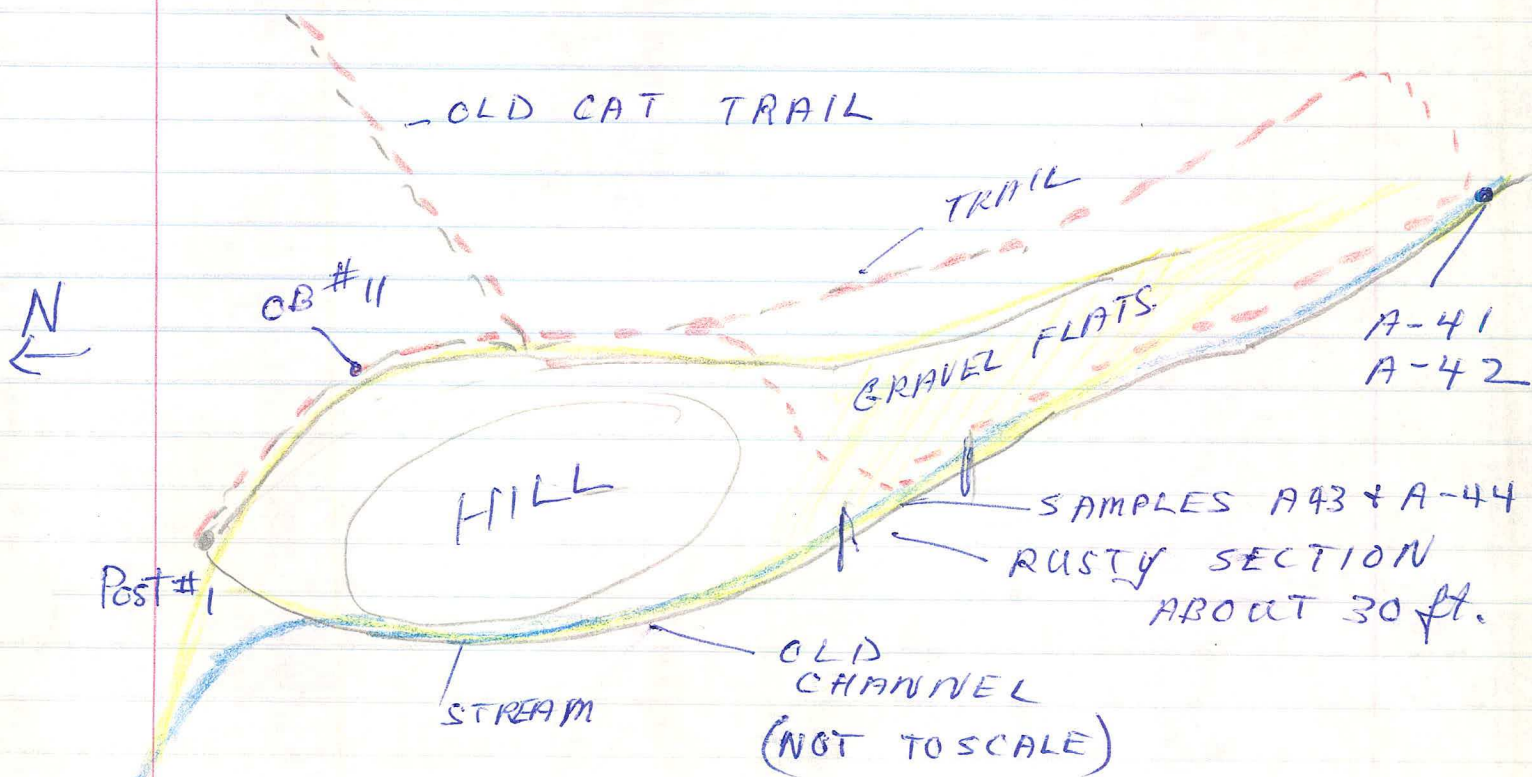 OLD CAT TRAIL
TRAIL
N
OB #11
GRAVEL FLATS.
A-41
A-42
HILL
SAMPLES A43 & A-44
RUSTY SECTION
ABOUT 30 ft.
Post #1
OLD
CHANNEL
(NOT TO SCALE)
STREAM